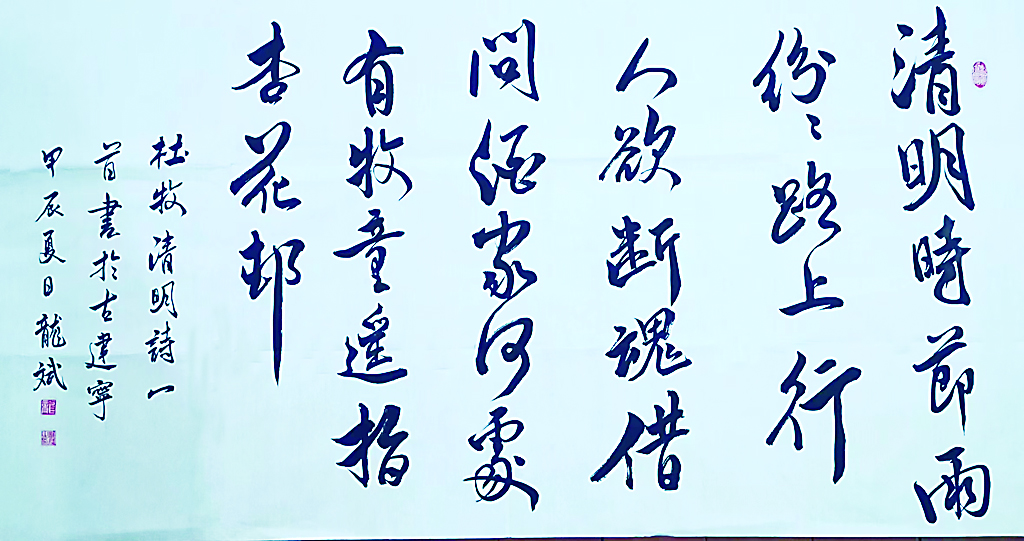 清明時節雨
纷〻路上行
人欲断魂借
問酒家何處
有牧童遥指
杏花邨
杜牧清明詩一
首書於古建寧
甲辰夏日龍斌